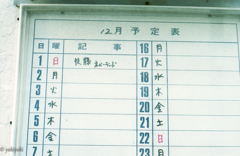 12月予定表
日 曜 記事 16 月
1 日 17 火
2 月 18 水
3 火 19 木
4 水 20 金
5 木 21 土
6 金 22 日
7 土 23 月